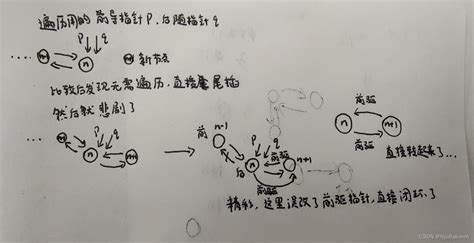 遍历用的前导指针P，后随指针q
P q
n 新节点
比较后发现无需遍历，直接尾插
然后就悲剧了
P q
n n+1
前 n-1
P q
前驱
n n+1
后
前驱
前驱
n n+1
前驱
直接转起来了…
精彩，这里误改了前驱指针，直接闭环了